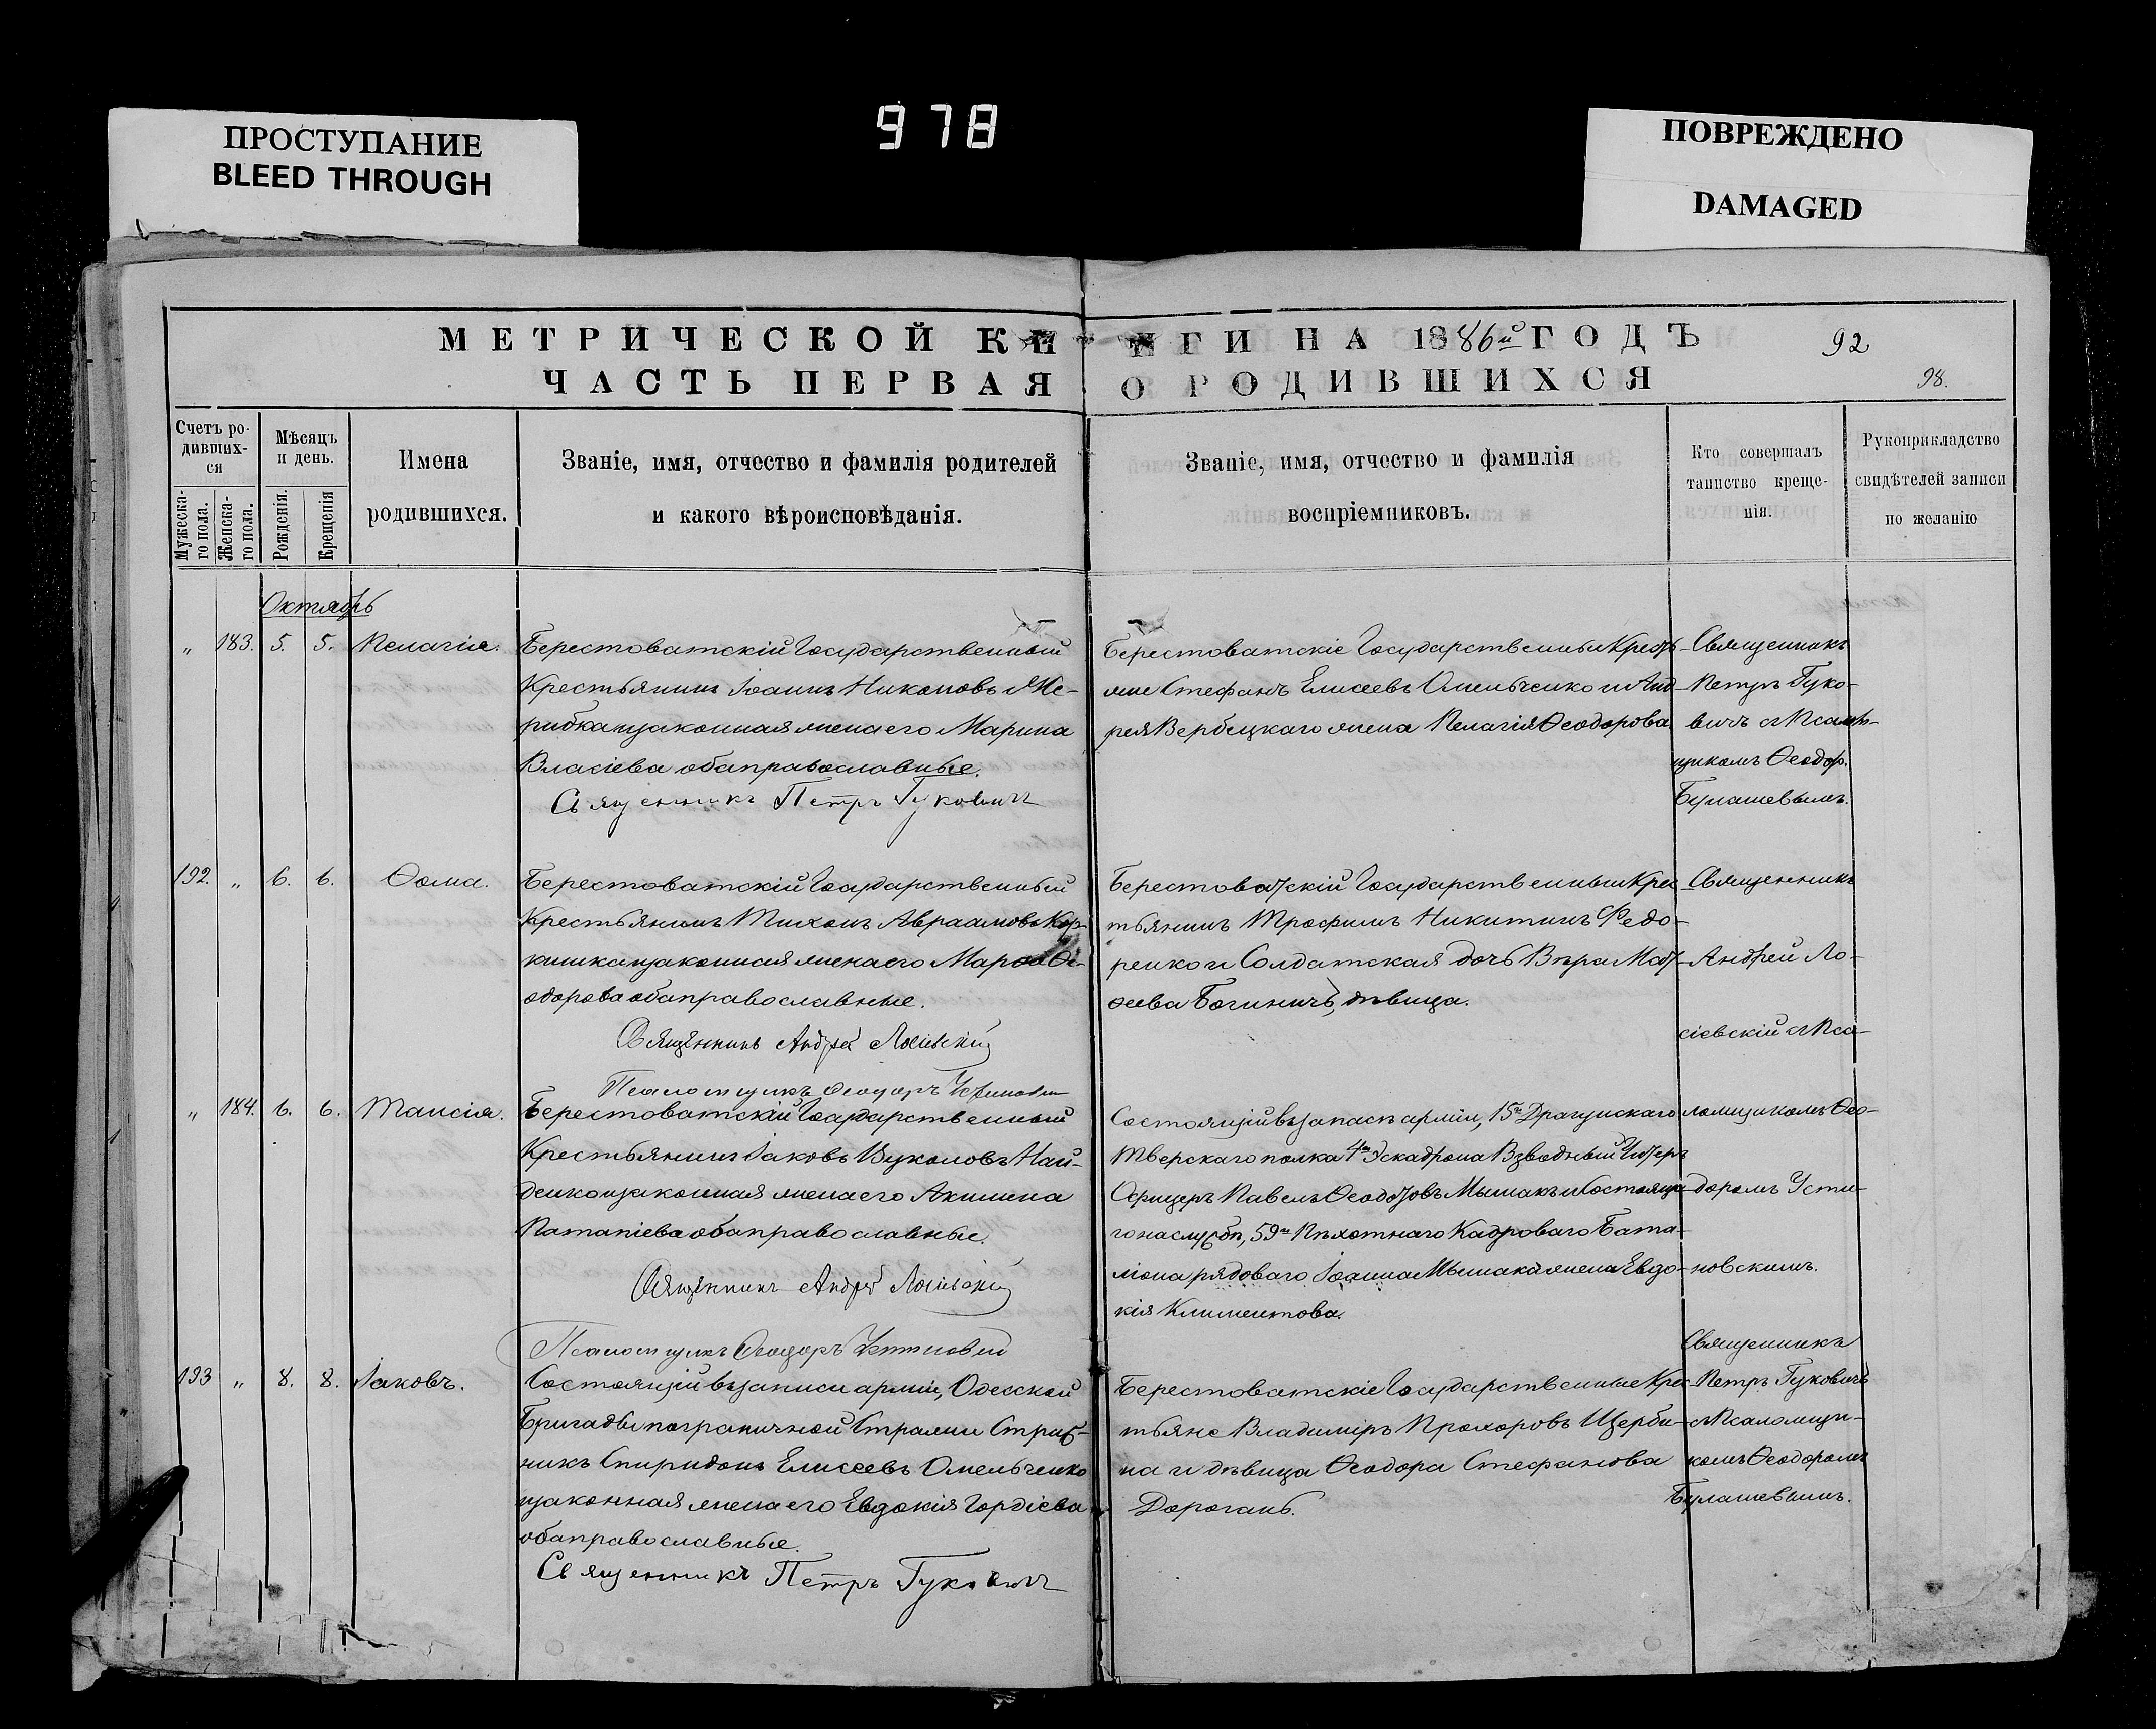 ПРОСТУПАНИЕ
BLEED THROUGH
978
ПОВРЕЖДЕНО
DAMAGED
МЕТРИЧЕСКОЙ КНИГИ НА 1886й ГОДЪ
92
ЧАСТЬ ПЕРВАЯ О РОДИВШИХСЯ
98.
Счетъ ро-
дивших-
ся
Мужеска-
го пола.
Женска-
го пола.
Мѣсяцъ
и день.
Рожденія.
Крещенія
Имена
родившихся.
Званіе, имя, отчество и фамилія родителей
и какого вѣроисповѣданія.
Званіе, имя, отчество и фамилія
воспріемниковъ.
Кто совершалъ
таинство креще-
нія.
Рукоприкладство
свидѣтелей записи
по желанію
Октябрь
„ 183. 5. 5. Пелагія.
Берестоватскій Государственный
Крестьянинъ Іоаннъ Никоновъ
и законная жена его Марина
Власіева оба православные.
Священникъ Петръ Гуковичъ
Берестоватскіе Государственные Кресть-
яне Стефанъ Елисеевъ Омельченко и Анд-
рея Вербецкаго жена Пелагія Ѳеодорова
Священникъ
Петръ Гуко-
вичъ съ Псалом-
щикомъ Ѳеодор.
Булашевымъ.
192. „ 6. 6. Ѳома.
Берестоватскій Государственный
Крестьянинъ Тихонъ Авраамовъ Кор-
и законная жена его Марѳа Ѳе-
одорова оба православные.
Священникъ Андрей Лосіевскій
Псаломщикъ Ѳеодоръ Устиновскій
Берестоватскій Государственный Крес-
тьянинъ Трофимъ Никитинъ Федо-
ренко и Солдатская дочь Вѣра Мат-
ѳеева Богиничъ, дѣвица.
Священникъ
Андрей Ло-
сіевскій съ Пса-
ломщикомъ Ѳео-
доромъ Усти-
новскимъ.
„ 184. 6. 6. Таисія.
Берестоватскій Государственный
Крестьянинъ Іаковъ Вуколовъ Най-
денко и законная жена его Акилина
Патапіева оба православные.
Священникъ Андрей Лосіевскій
Псаломщикъ Ѳеодоръ Устиновскій
Состоящій въ запасѣ арміи, 15го Драгунскаго
Тверскаго полка 4го Эскадрона Взводный Унтеръ
Офицеръ Павелъ Ѳеодотовъ Мышакъ и Состояща-
го на службѣ, 59го Пѣхотнаго Кадроваго Бата-
ліона рядоваго Іоанна Мышака жена Евдо-
кія Климентова.
193 „ 8. 8. Іаковъ.
Состоящій въ записи арміи, Одесской
Бригады пограничной Стражи
Спиридонъ Елисеевъ Омельченко
и законная жена его Евдокія Гордіева
оба православные.
Священникъ Петръ Гуковичъ
Берестоватскіе Государственные Крес-
тьяне Владиміръ Прохоровъ Щерби-
на и дѣвица Ѳеодора Стефанова
Дорогань.
Священникъ
Петръ Гуковичъ
съ Псаломщи-
комъ Ѳеодоромъ
Булашевымъ.